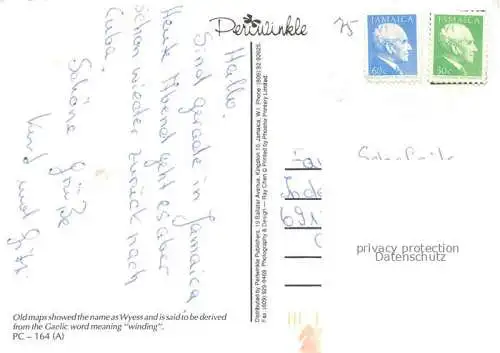 Periwinkle
Hallo.
Sind gerade in Jamaica,
Heute Abend geht es aber
schon wieder zurück nach
Cuba.
Schöne Grüße
Kurt und
75
JAMAICA
JAMAICA
60c
50c
691
privacy protection
Datenschutz
Distributed by Periwinkle Publishers, 19 Ballater Avenue, Kingston 10, Jamaica, W.I. Phone: (809) 92-92625.
Fax: (809) 929-9469 Photography & Design — Ray Chen © Printed by Phoenix Printery Limited.
Old maps showed the name as Wyess and is said to be derived
from the Gaelic word meaning "winding".
PC – 164 (A)